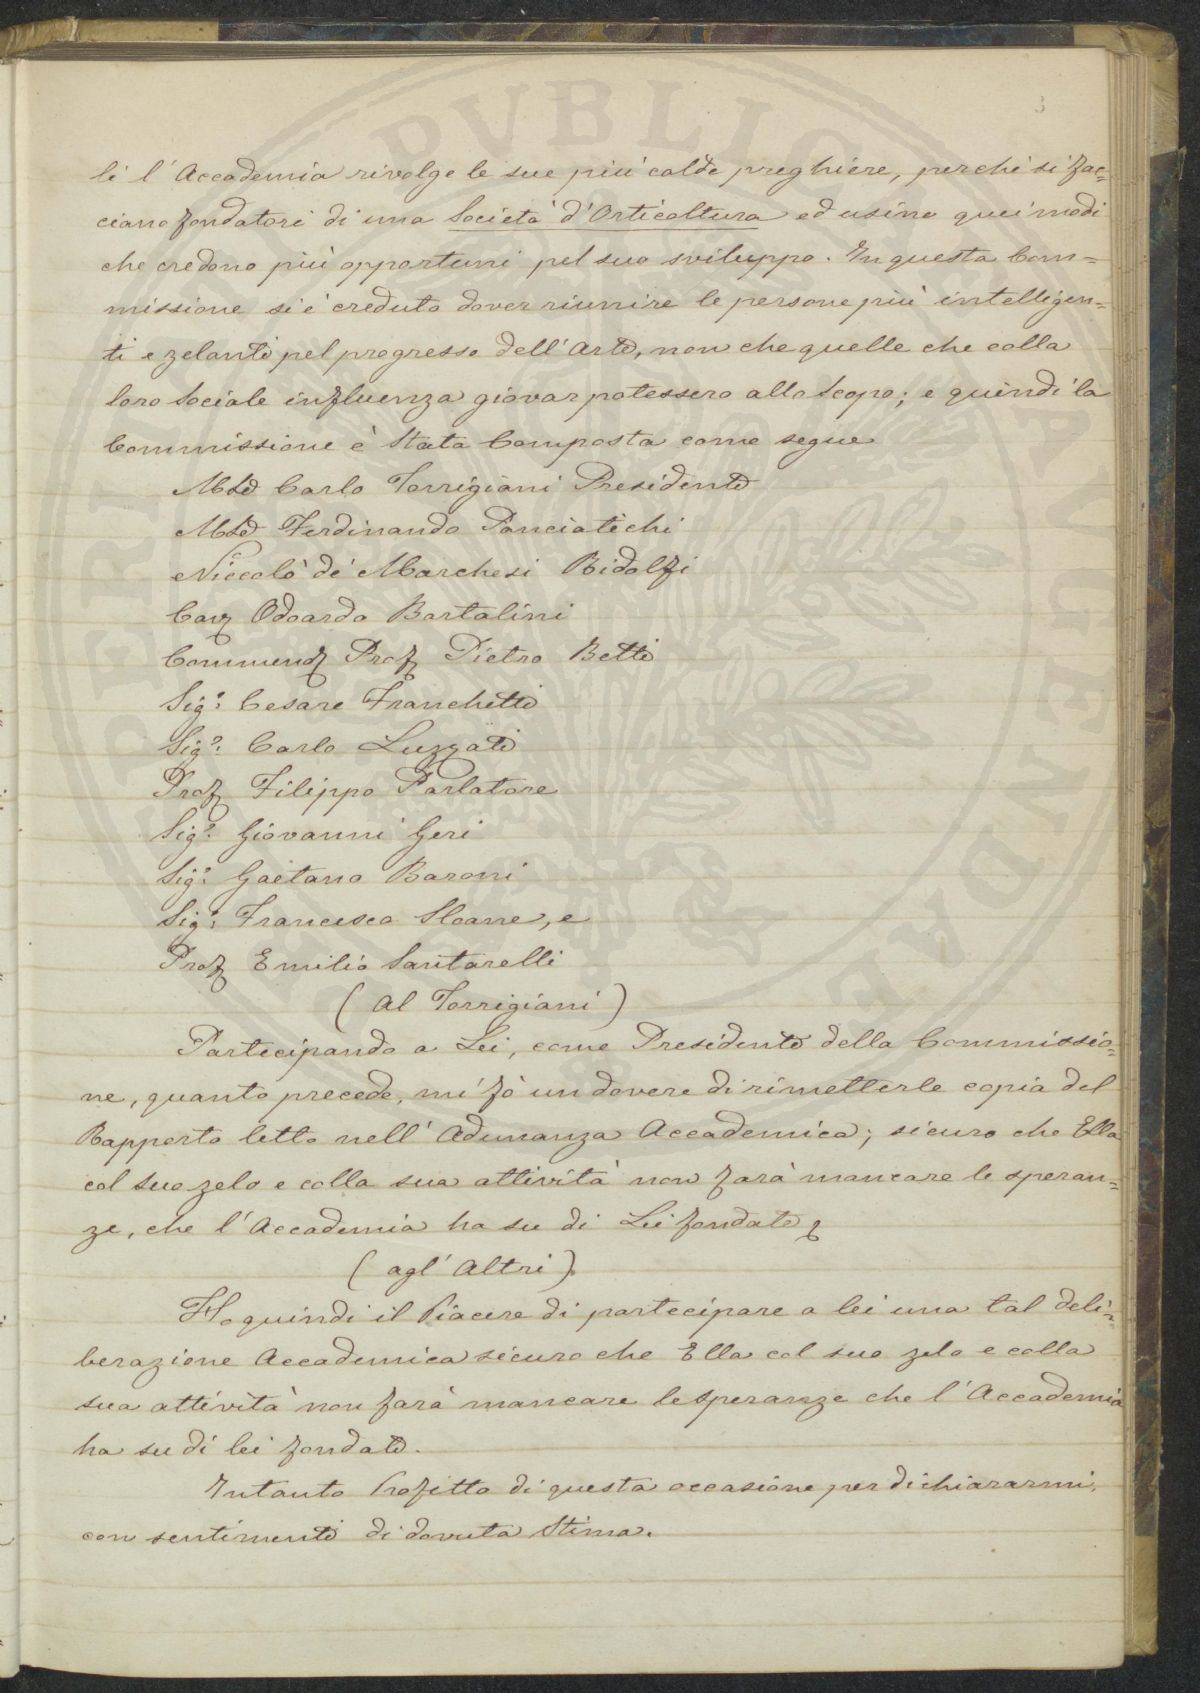 3
li l'Accademia rivolge le sue più calde preghiere, perchè si fac=
ciano fondatori di una Società d'Orticoltura ed usino quei modi
che credono più opportuni pel suo sviluppo. In questa Com=
missione si è creduto dover riunire le persone più intelligen=
ti e zelanti pel progresso dell'Arte, non che quelle che colla
loro Sociale influenza giovar potessero allo Scopo; e quindi la
Commissione è Stata Composta come segue
Mse Carlo Torrigiani Presidente
Mse Ferdinando Panciatichi
Niccolò de' Marchesi Ridolfi
Cav Odoardo Bartalini
Commend Prof Pietro Betti
Sig.e Cesare Franchetti
Sig.e Carlo Luzzati
Prof Filippo Parlatore
Sig.e Giovanni Geri
Sig.e Gaetano Baroni
Sig.e Francesco Sloane, e
Prof Emilio Santarelli
(Al Torrigiani)
Partecipando a Lei, come Presidente della Commissio=
ne, quanto precede, mi fò un dovere di rimetterle copia del
Rapporto letto nell'Adunanza Accademica; sicuro che Ella
col suo zelo e colla sua attività non farà mancare le speran=
ze, che l'Accademia ha su di Lei fondate
(agl'Altri)
Ho quindi il Piacere di partecipare a lei una tal deli=
berazione Accademica sicuro che Ella col suo zelo e colla
sua attività non farà mancare le speranze che l'Accademia
ha su di lei fondate.
Intanto Profitto di questa occasione per dichiararmi
con sentimenti di dovuta Stima.